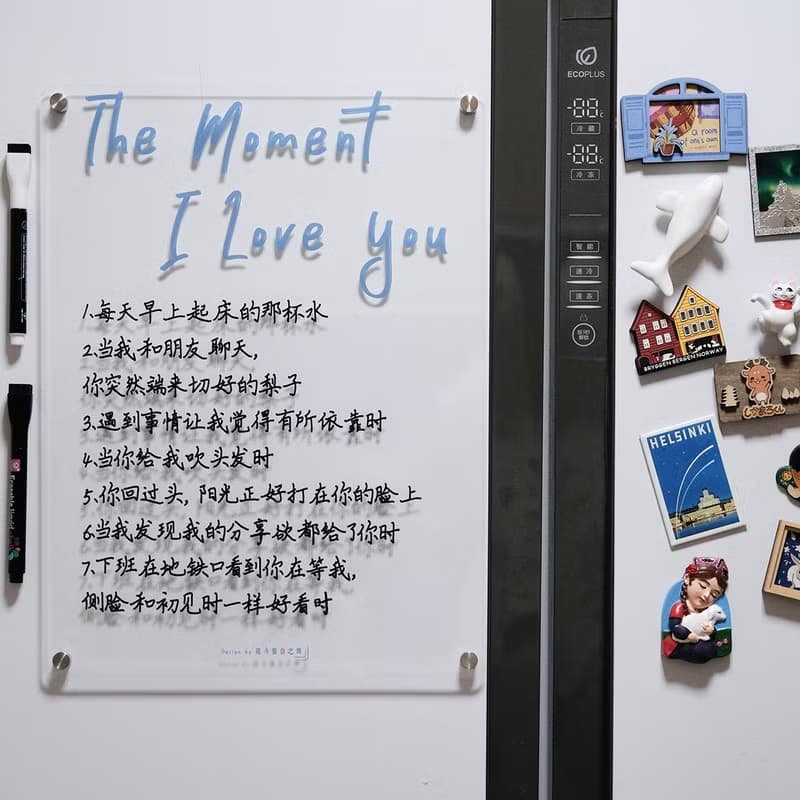 The Moment
I Love you
1.每天早上起床的那杯水
2.当我和朋友聊天,
你突然端来切好的梨子
3.遇到事情让我觉得有所依靠时
4.当你给我吹头发时
5.你回过头,阳光正好打在你的脸上
6.当我发现我的分享欲都给了你时
7.下班在地铁口看到你在等我,
侧脸和初见时一样好看时
Design by
ECOPLUS
-88c
冷藏
-88c
冷冻
智能
速冷
速冻
a room
of one's own
BRYGGEN BERGEN NORWAY
HELSINKI